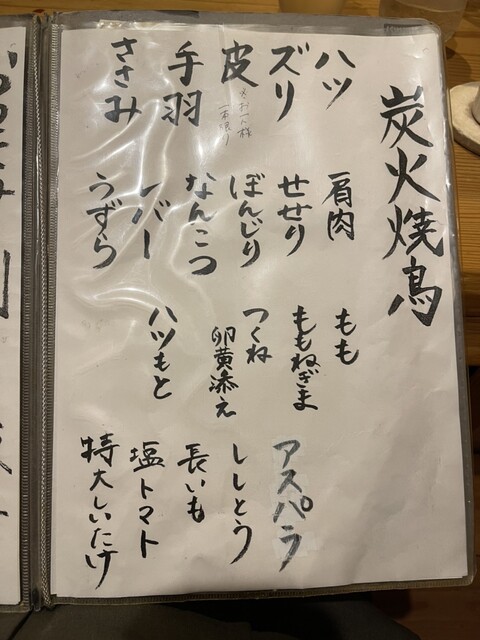 炭火焼鳥
ハツ
ズリ
皮
※お一人様
一本限り
手羽
ささみ
肩肉
せせり
ぼんじり
なんこつ
レバー
うずら
もも
ももねぎま
つくね
卵黄添え
ハツもと
アスパラ
ししとう
長いも
塩トマト
特大しいたけ